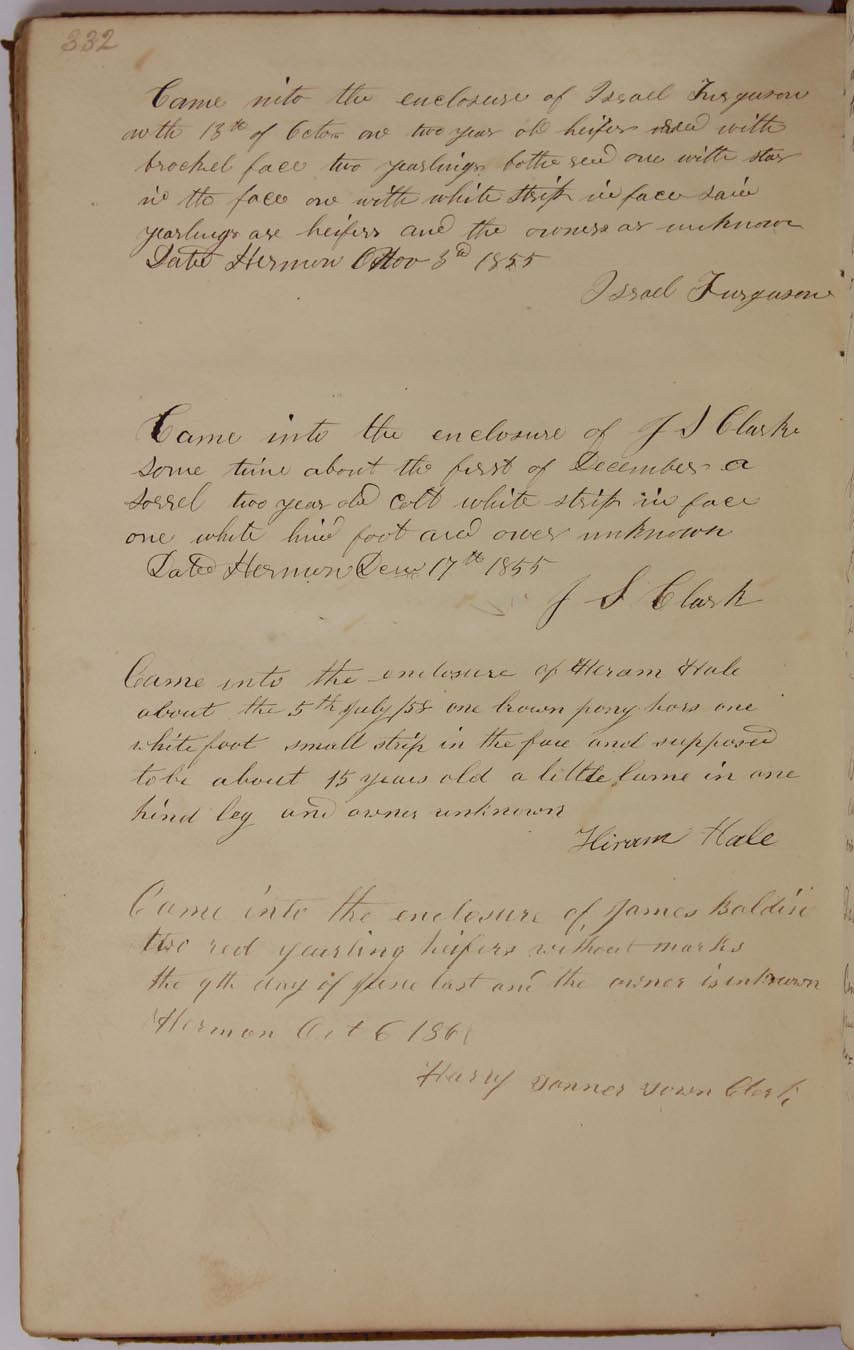 332
Came into the enclosure of Israel Furguson
on th 18th of Octo one two year old heifer red with
brockel face two yearlings bothe red one with star
in the face one with white strip in face said
yearlings are heifers and the owners ar unknown
Dated Hermon Nov 3d 1855
Israel Furguson
Came into the enclosure of J S Clarke
some time about the first of December a
sorrel two year old colt white strip in face
one white hind foot and owner unknown
Dated Hermon Dem 17th 1855
J S Clark
Came into the enclosure of Hiram Hale
about the 5th July /58 one brown pony hors one
white foot small strip in the face and supposed
to be about 15 years old a little lame in one
hind leg and owner unknown
Hiram Hale
Came into the enclosure of James Baldin
two red yearling heifers without marks
the 9th day of June last and the owner is unknown
Hermon Oct 6 186
Harry Tanner Town Clerk